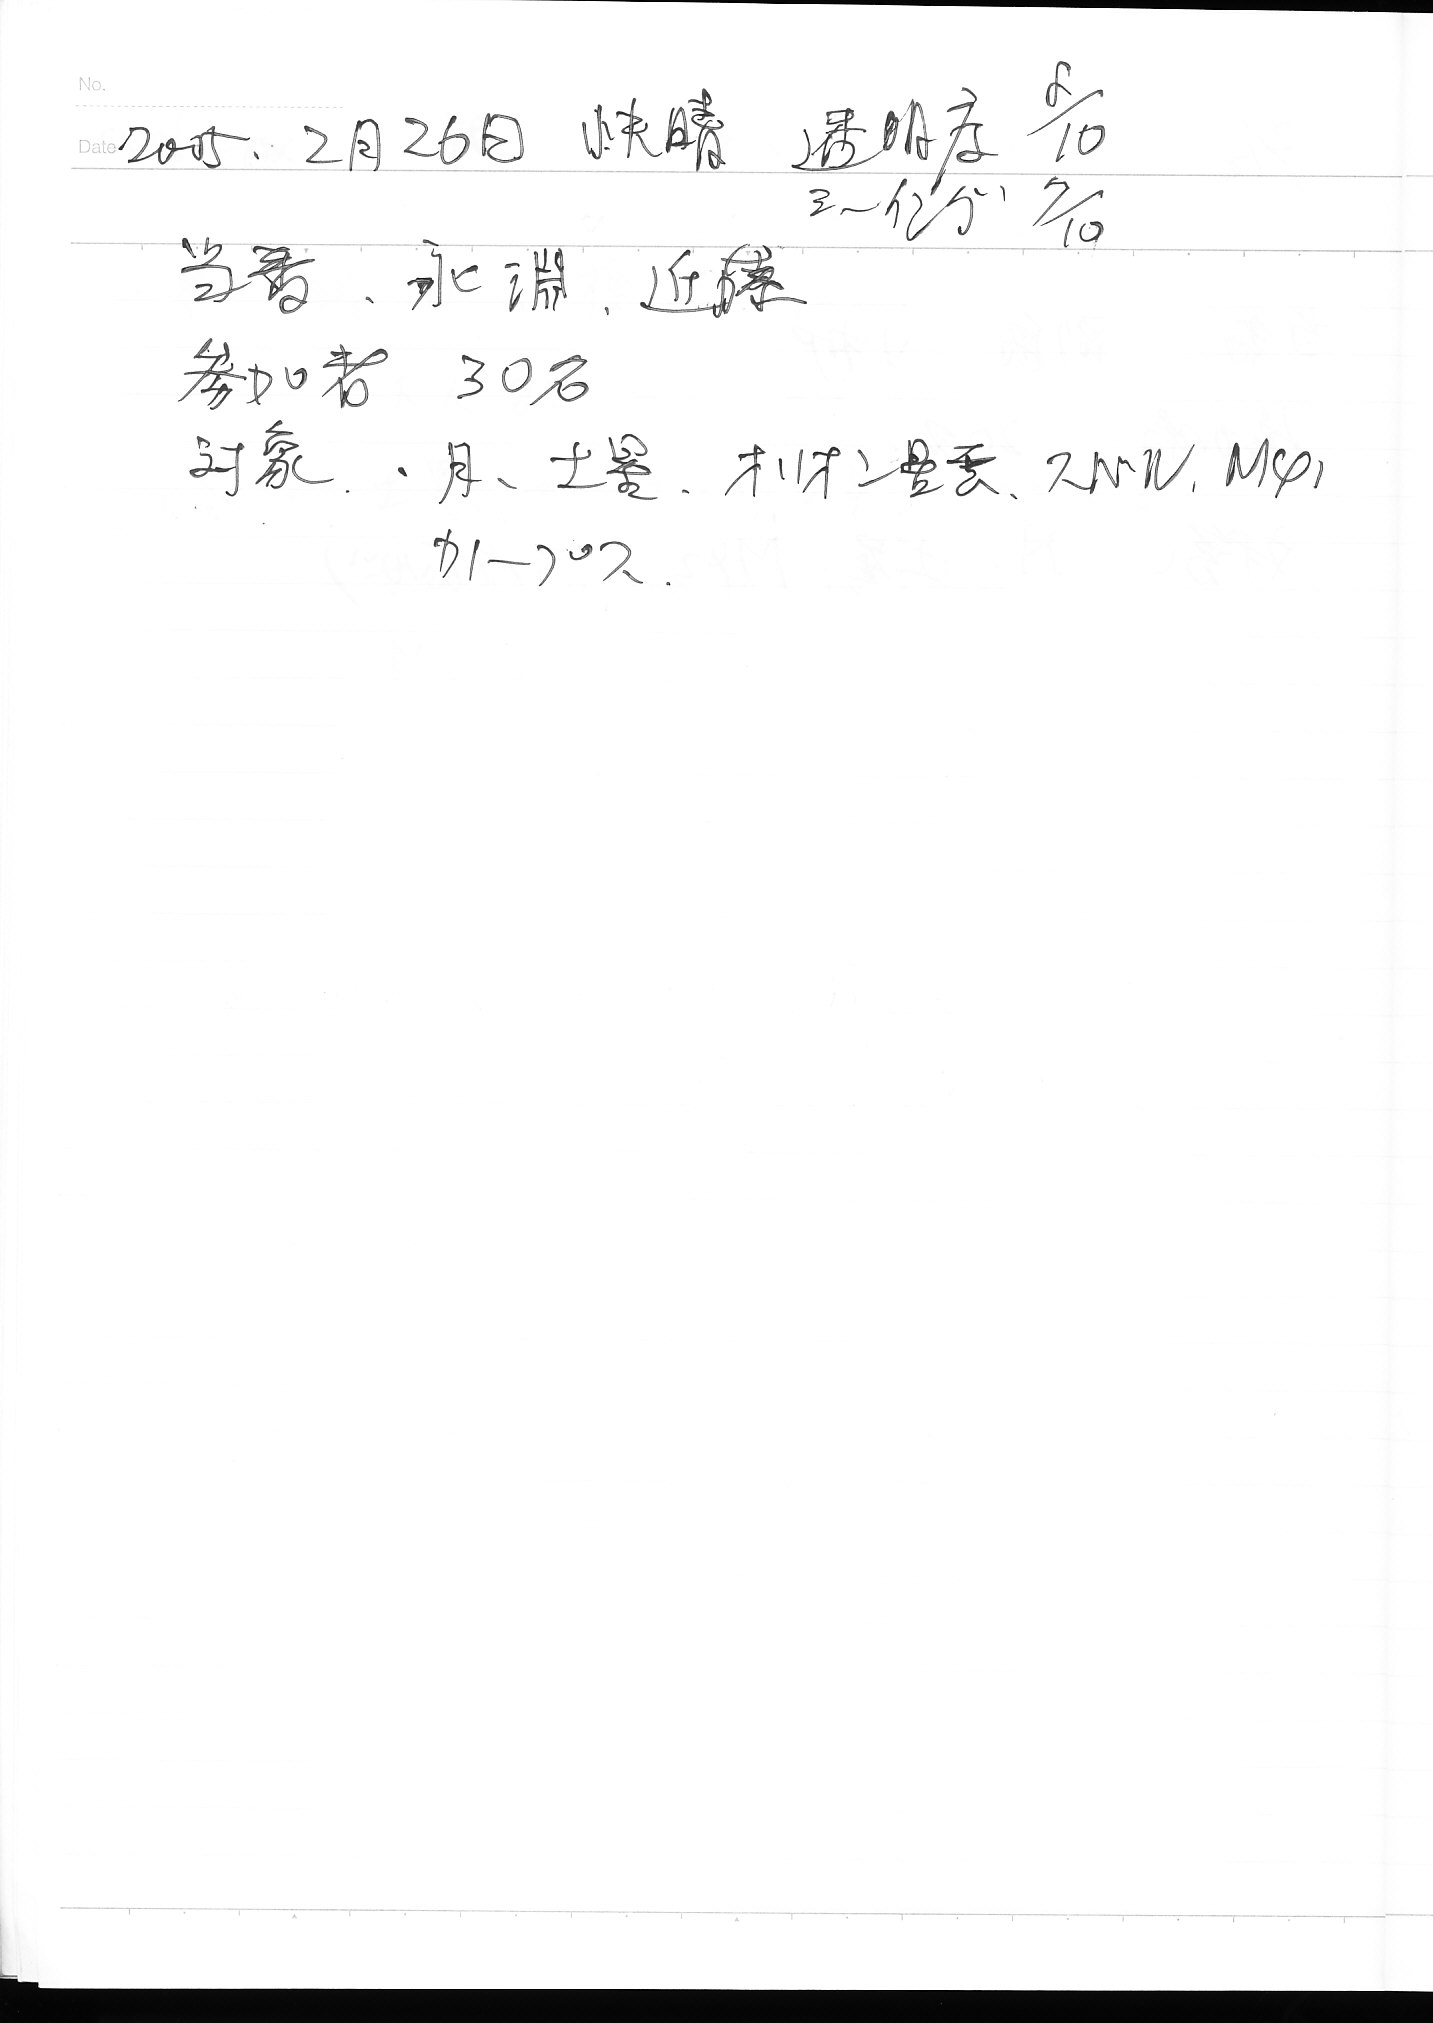 No.
Date 2005. 2月26日 快晴 透明度 8/10
シーイング 7/10
当番、永淵、近藤
参加者 30名
対象、月、土星、オリオン星雲、スバル、M41
カノープス.